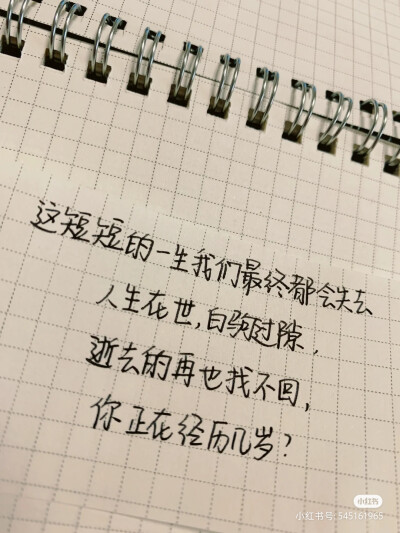 这短短的一生我们最终都会失去
人生在世,白驹过隙,
逝去的再也找不回,
你正在经历几岁?
小红书
小红书号:545161965